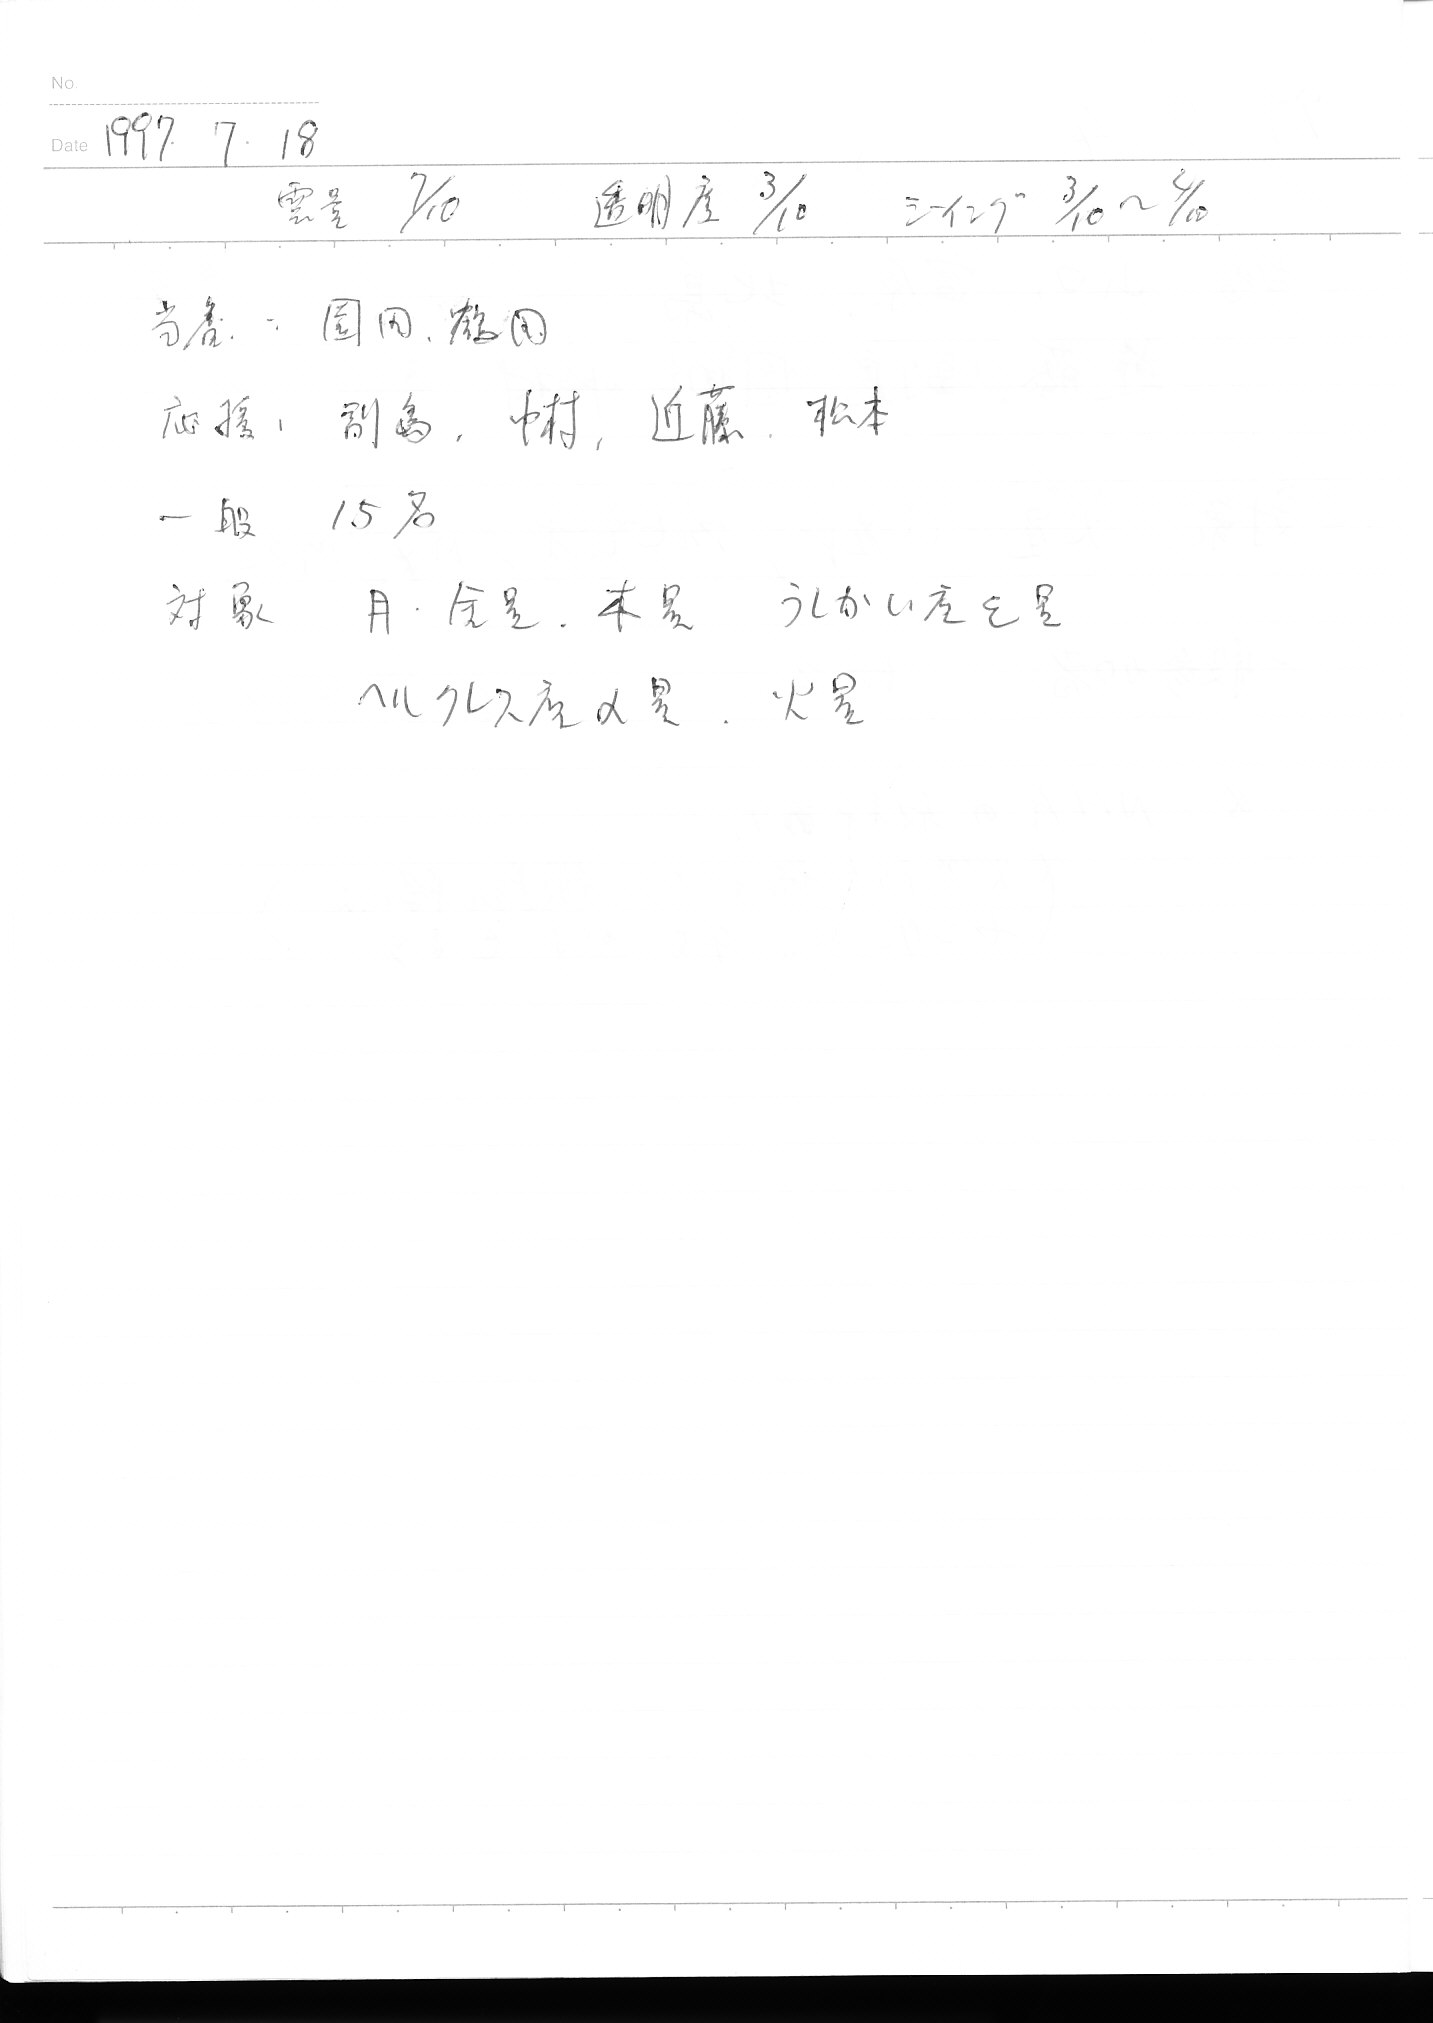 No.
Date 1997. 7. 18
雲量 7/10 透明度 3/10 シーイング 3/10～4/10
当番： 園田、鶴田
応援、 副島、中村、近藤、松本
一般 15名
対象 月・金星、木星 うしかい座ε星
ヘルクレス座α星、火星